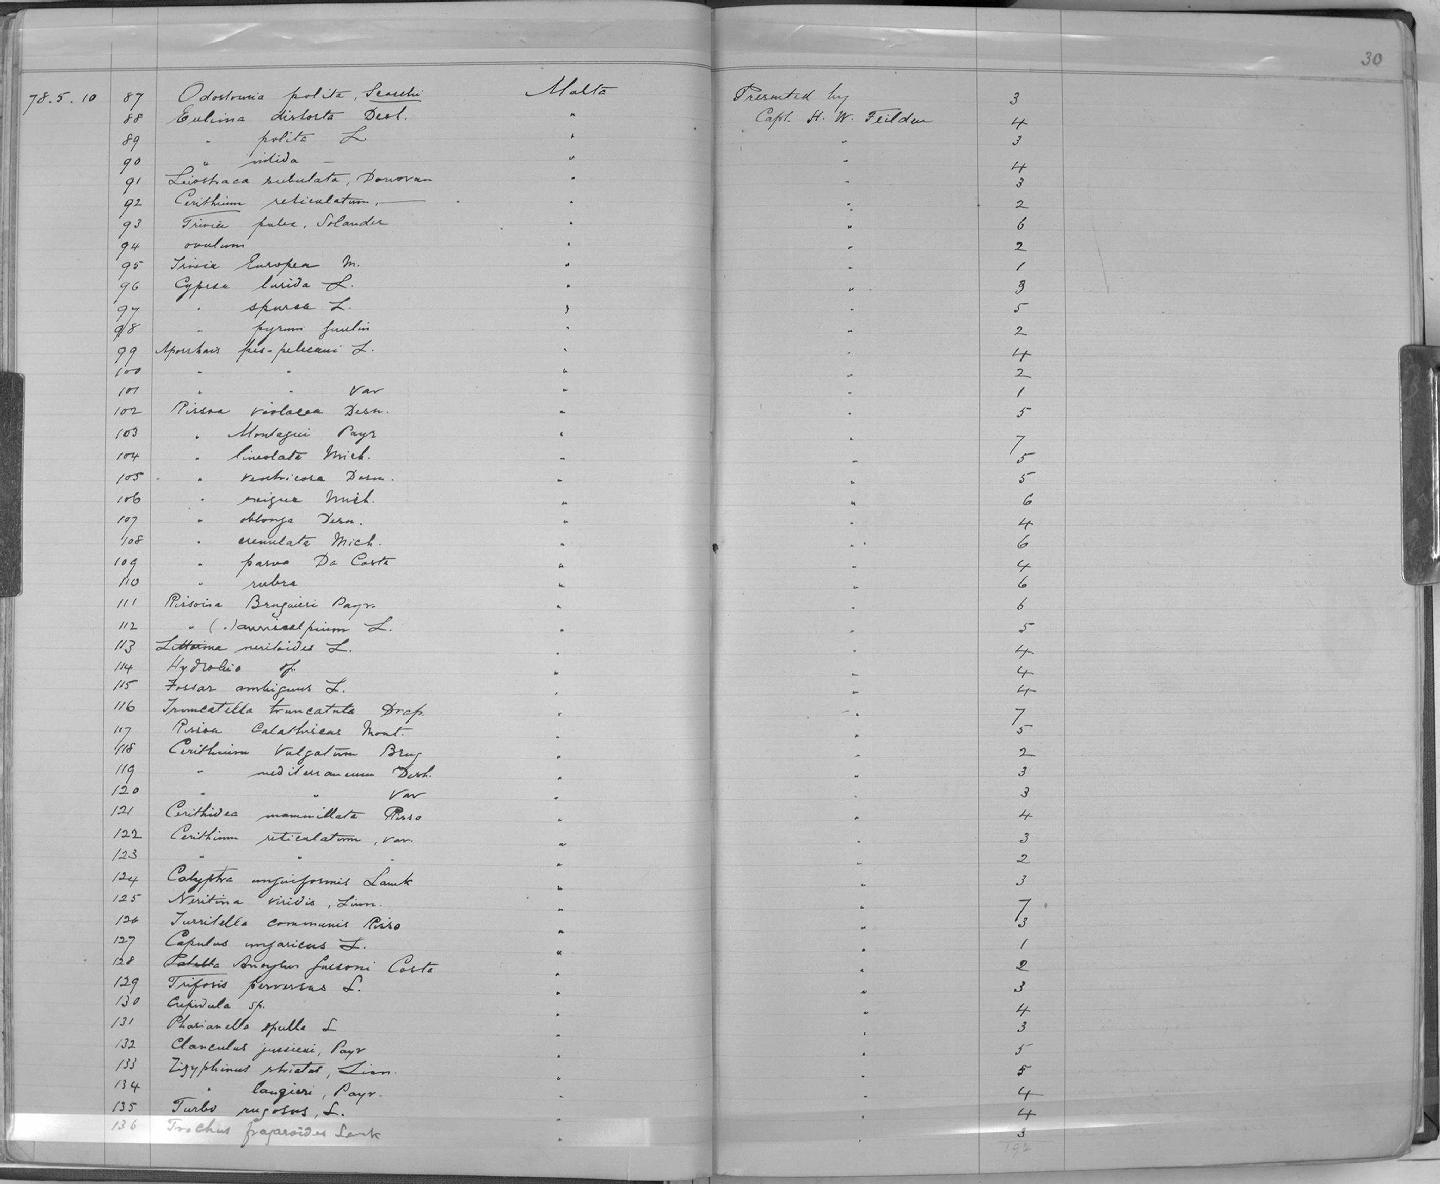 30
78.5.10 87 Odostomia polita, Scacchi Malta Presented by 3
88 Eulima distorta Desh. " Capt. H. W. Feilden 4
89 " polita L " " 3
90 " nitida — " " 4
91 Leiostraca subulata, Donovan " " 3
92 Cerithium reticulatum, — " " 2
93 Trivia pulex, Solander " " 6
94 ovulum " " 2
95 Trivia Europea M. " " 1
96 Cyprea lurida L. " " 3
97 " spurca L. " " 5
98 " pyrum Gmelin " " 2
99 Aporrhais pes-pelecani L. " " 4
100 " " " " 2
101 " " Var " " 1
102 Rissoa violacea Desm. " " 5
103 " Montagui Payr " " 7
104 " lineolata Mich. " " 5
105 " ventricosa Desm. " " 5
106 " exigua Mich. " " 6
107 " oblonga Desm. " " 4
108 " crenulata Mich. " " 6
109 " parva Da Costa " " 4
110 " rubra " " 6
111 Rissoina Bruguieri Payr. " " 6
112 " (.) auriscalpium L. " " 5
113 Littorina neritoides L. " " 4
114 Hydrobia sp. " " 4
115 Fossar ambiguus L. " " 4
116 Truncatella truncatula Drap. " " 7
117 Rissoa Calathiscus Mont. " " 5
118 Cerithium Vulgatum Brug " " 2
119 " mediterraneum Desh. " " 3
120 " " Var " " 3
121 Cerithidea mammillata Risso " " 4
122 Cerithium reticulatum, var. " " 3
123 " " " " " 2
124 Calyptra unguiformis Lamk " " 3
125 Neritina viridis, Linn. " " 7
126 Turritella communis Risso " " 3
127 Capulus ungaricus L. " " 1
128 Patella Ancylus gussoni Costa " " 2
129 Triforis perversus L. " " 3
130 Crepidula sp. " " 4
131 Phasianella pulla L " " 3
132 Clanculus jussieui, Payr " " 5
133 Zizyphinus striatus, Linn. " " 5
134 " laugieri, Payr. " " 4
135 Turbo rugosus, L. " " 4
136 Trochus fragaroides Lamk " " 3
192